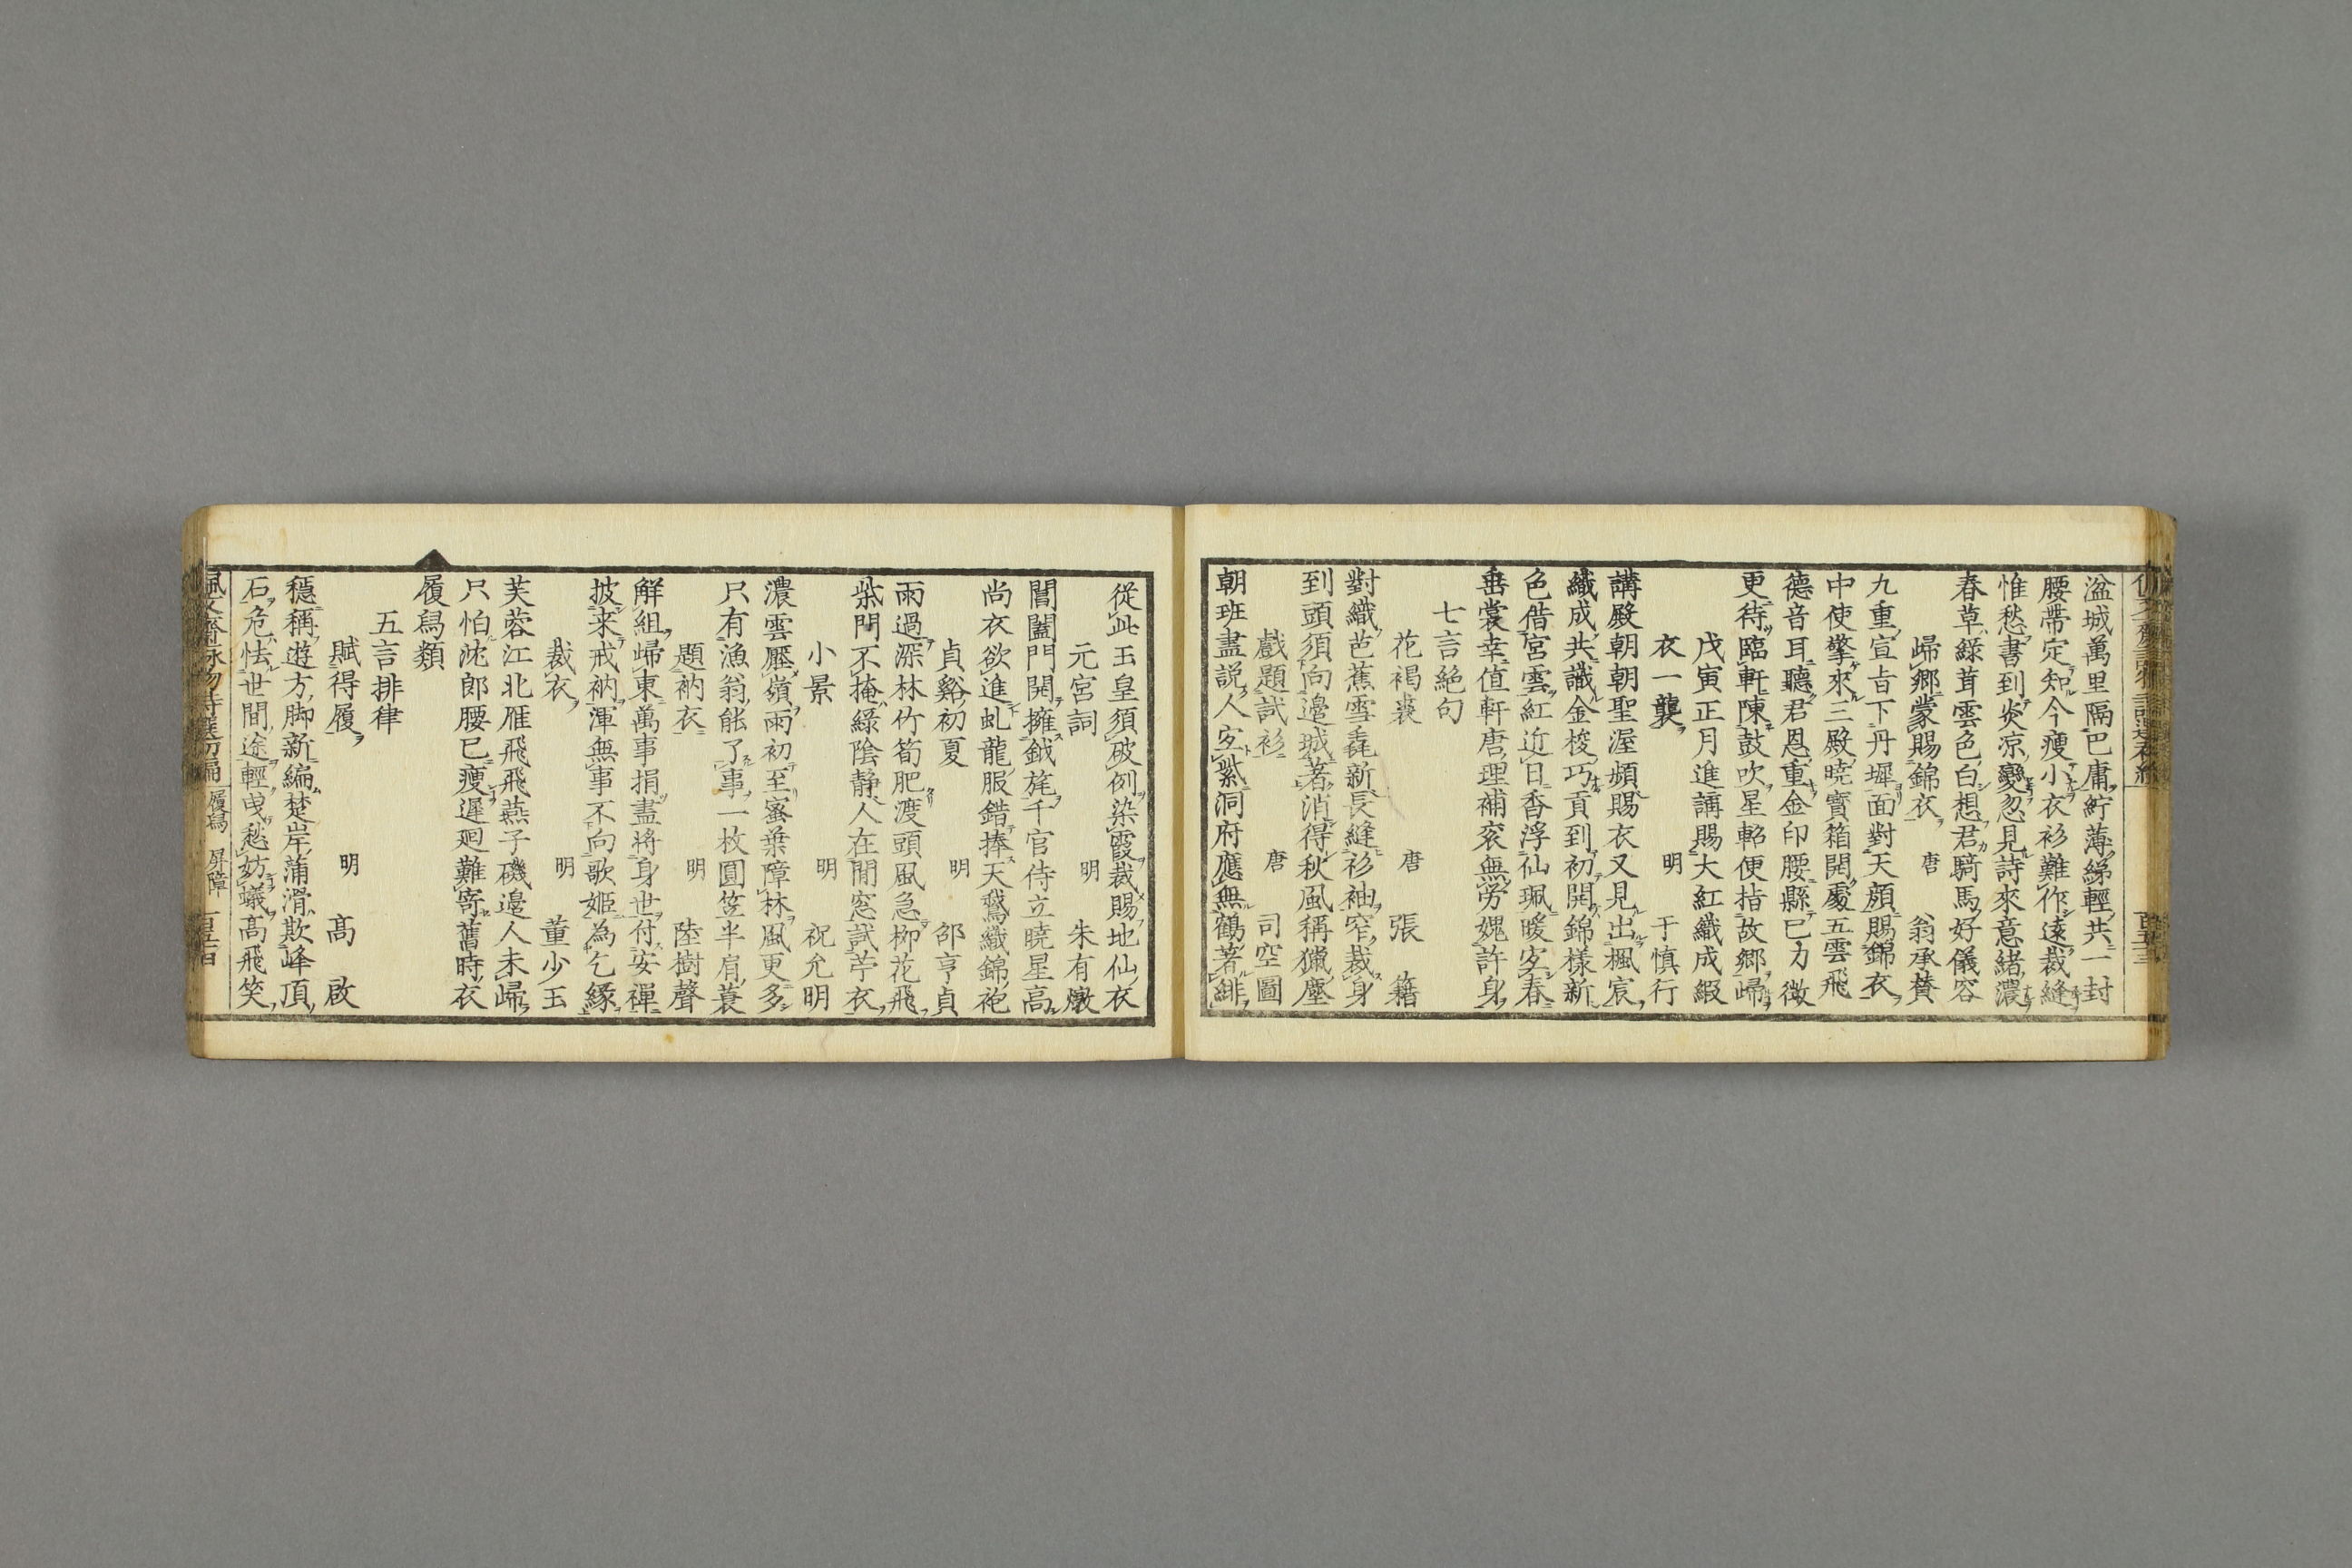 湓城萬里隔巴庸紵薄綈輕共一封
腰帶定知今瘦小衣衫難作遠裁縫
惟愁書到炎凉變忽見詩來意緒濃
春草綠茸雲色白想君騎馬好儀容
歸鄉蒙賜錦衣 唐 翁承贊
九重宣旨下丹墀面對天顔賜錦衣
中使擎來三殿曉寶箱開處五雲飛
德音耳聽君恩重金印腰縣已力微
更待臨軒陳鼓吹星軺便指故鄉歸
戊寅正月進講賜大紅織成緞
衣一襲 明 于慎行
講殿朝朝聖渥頻賜衣又見出楓宸
織成共識金梭巧貢到初開錦樣新
色借宮雲紅近日香浮仙珮暖宐春
垂裳幸值軒唐理補袞無勞媿許身
七言絶句
花褐裘 唐 張籍
對織芭蕉雪毳新長縫衫袖窄裁身
到頭須向邊城著消得秋風稱獵塵
戲題試衫 唐 司空圖
朝班盡説人宐紫洞府應無鶴著緋
從此玉皇須破例染霞裁賜地仙衣
元宮詞 明 朱有燉
閶闔門開擁鉞旄千官侍立曉星高
尚衣欲進虬龍服錯捧天鵞織錦袍
貞谿初夏 明 邵亨貞
雨過深林竹筍肥渡頭風急柳花飛
柴門不掩綠陰静人在閒窓試苧衣
小景 明 祝允明
濃雲壓嶺雨初至蜜葉障林風更多
只有漁翁能了事一枚圓笠半肩蓑
題衲衣 明 陸樹聲
解組歸東萬事捐盡將身世付安禪
披来戒衲渾無事不向歌姬為乞緣
裁衣 明 董少玉
芙蓉江北雁飛飛燕子磯邉人未歸
只怕沈郎腰已瘦遲廻難寄舊時衣
履舄類
五言排律
賦得履 明 高啟
穩稱遊方脚新編楚岸蒲滑欺峰頂
石危怯世間途輕曳愁妨蟻高飛笑
佩文齋詠物詩選初編 履舄 屏障 百五十四